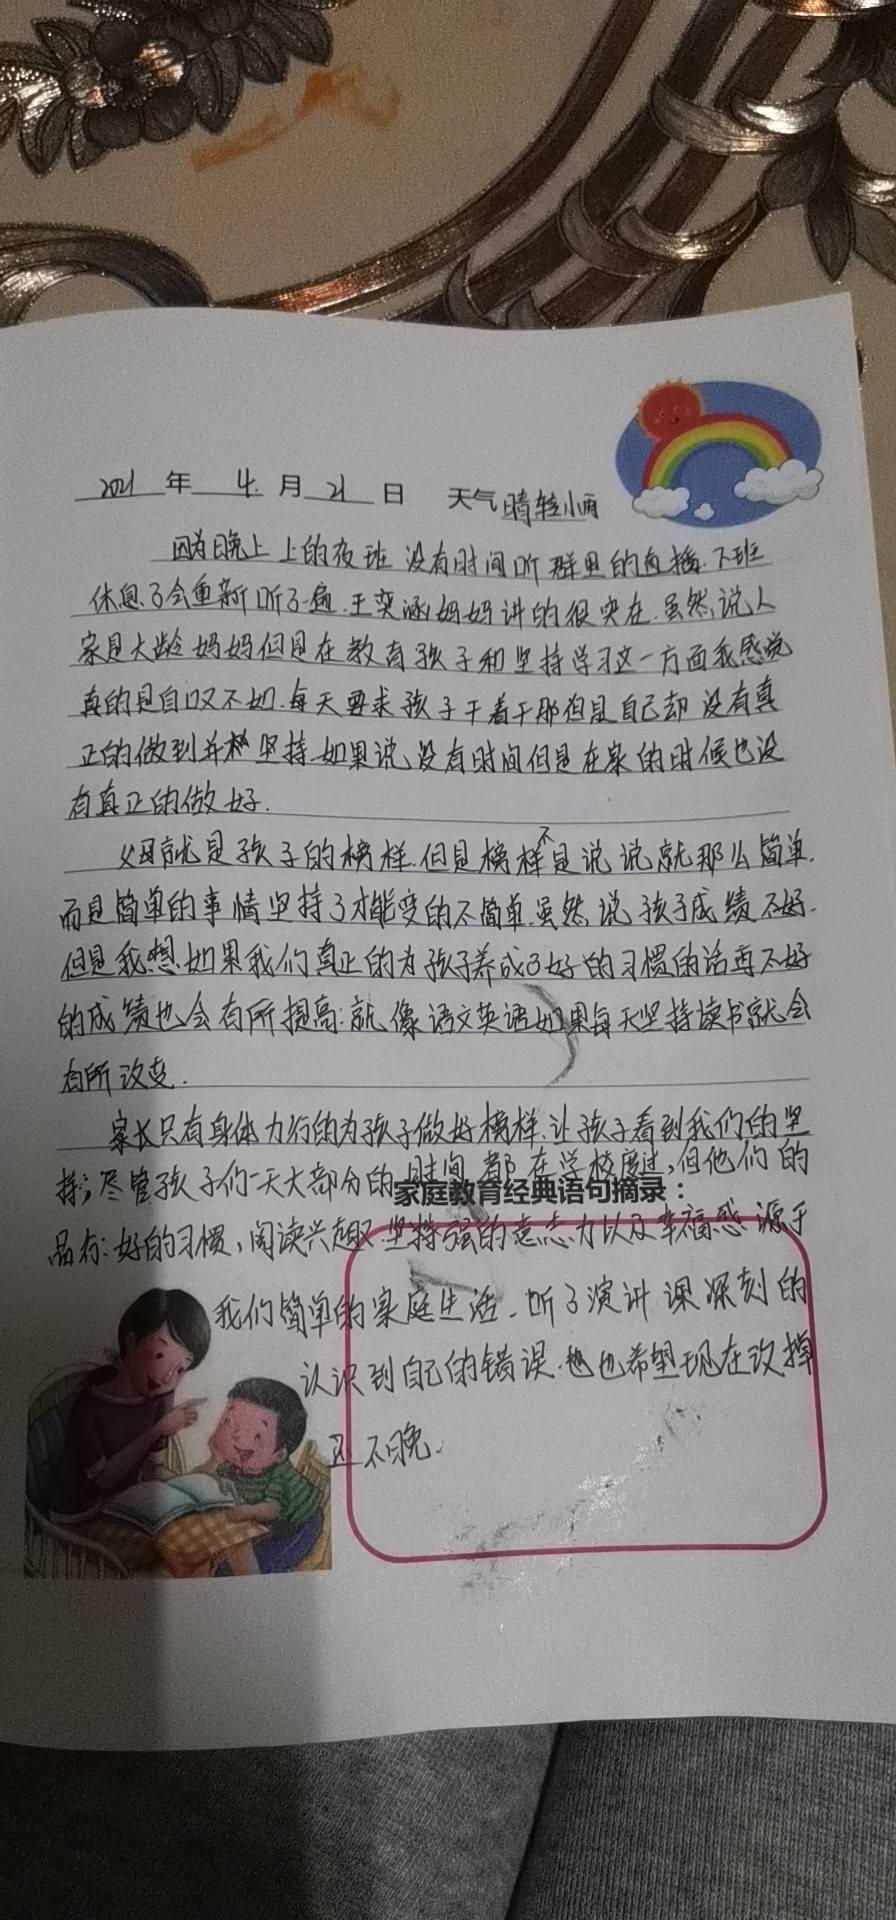 2021年4.月21日 天气晴转小雨
因为晚上上的夜班没有时间听群里的直播.下班
休息了会重新听了一遍.王奕涵妈妈讲的很实在.虽然说人
家是大龄妈妈但是在教育孩子和坚持学习这一方面我感觉
真的是自叹不如.每天要求孩子干着干那但是自己却没有真
正的做到并坚持.如果说没有时间但是在家的时候也没
有真正的做好.
父母就是孩子的榜样.但是榜样不是说说就那么简单.
而是简单的事情坚持了才能变的不简单.虽然说孩子成绩不好.
但是我想如果我们真正的为孩子养成了好的习惯的话再不好
的成绩也会有所提高.就像语文英语如果每天坚持读书就会
有所改变.
家长只有身体力行的为孩子做好榜样.让孩子看到我们的坚
持;尽管孩子们一天大部分的时间都在学校度过,但他们的
家庭教育经典语句摘录：
品行:好的习惯,阅读兴趣.坚持强的意志力以及幸福感源于
我们简单的家庭生活.听了演讲课深刻的
认识到自己的错误.也希望现在改掉
还不晚.